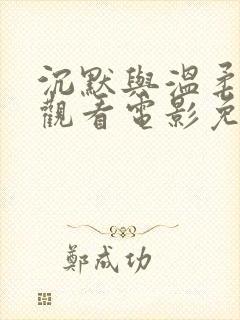 沉默與溫柔
觀看電影免
鄭成功